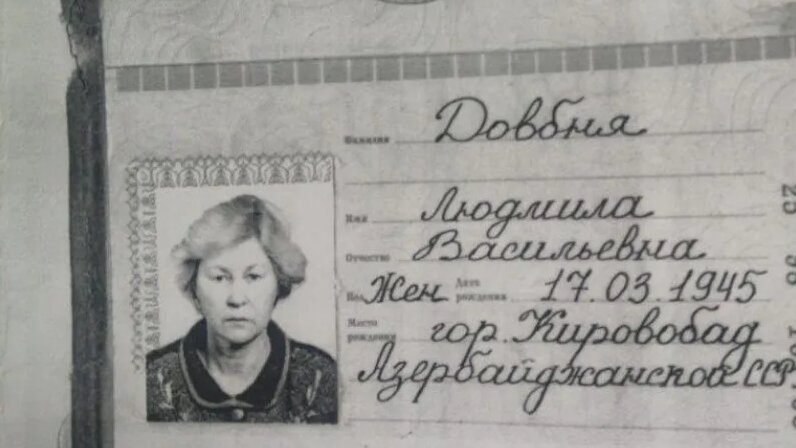 Фамилия Довбня
Имя Людмила
Отчество Васильевна
Пол Жен Дата рождения 17.03.1945
Место рождения гор. Кировобад
Азербайджанской ССР
25
98